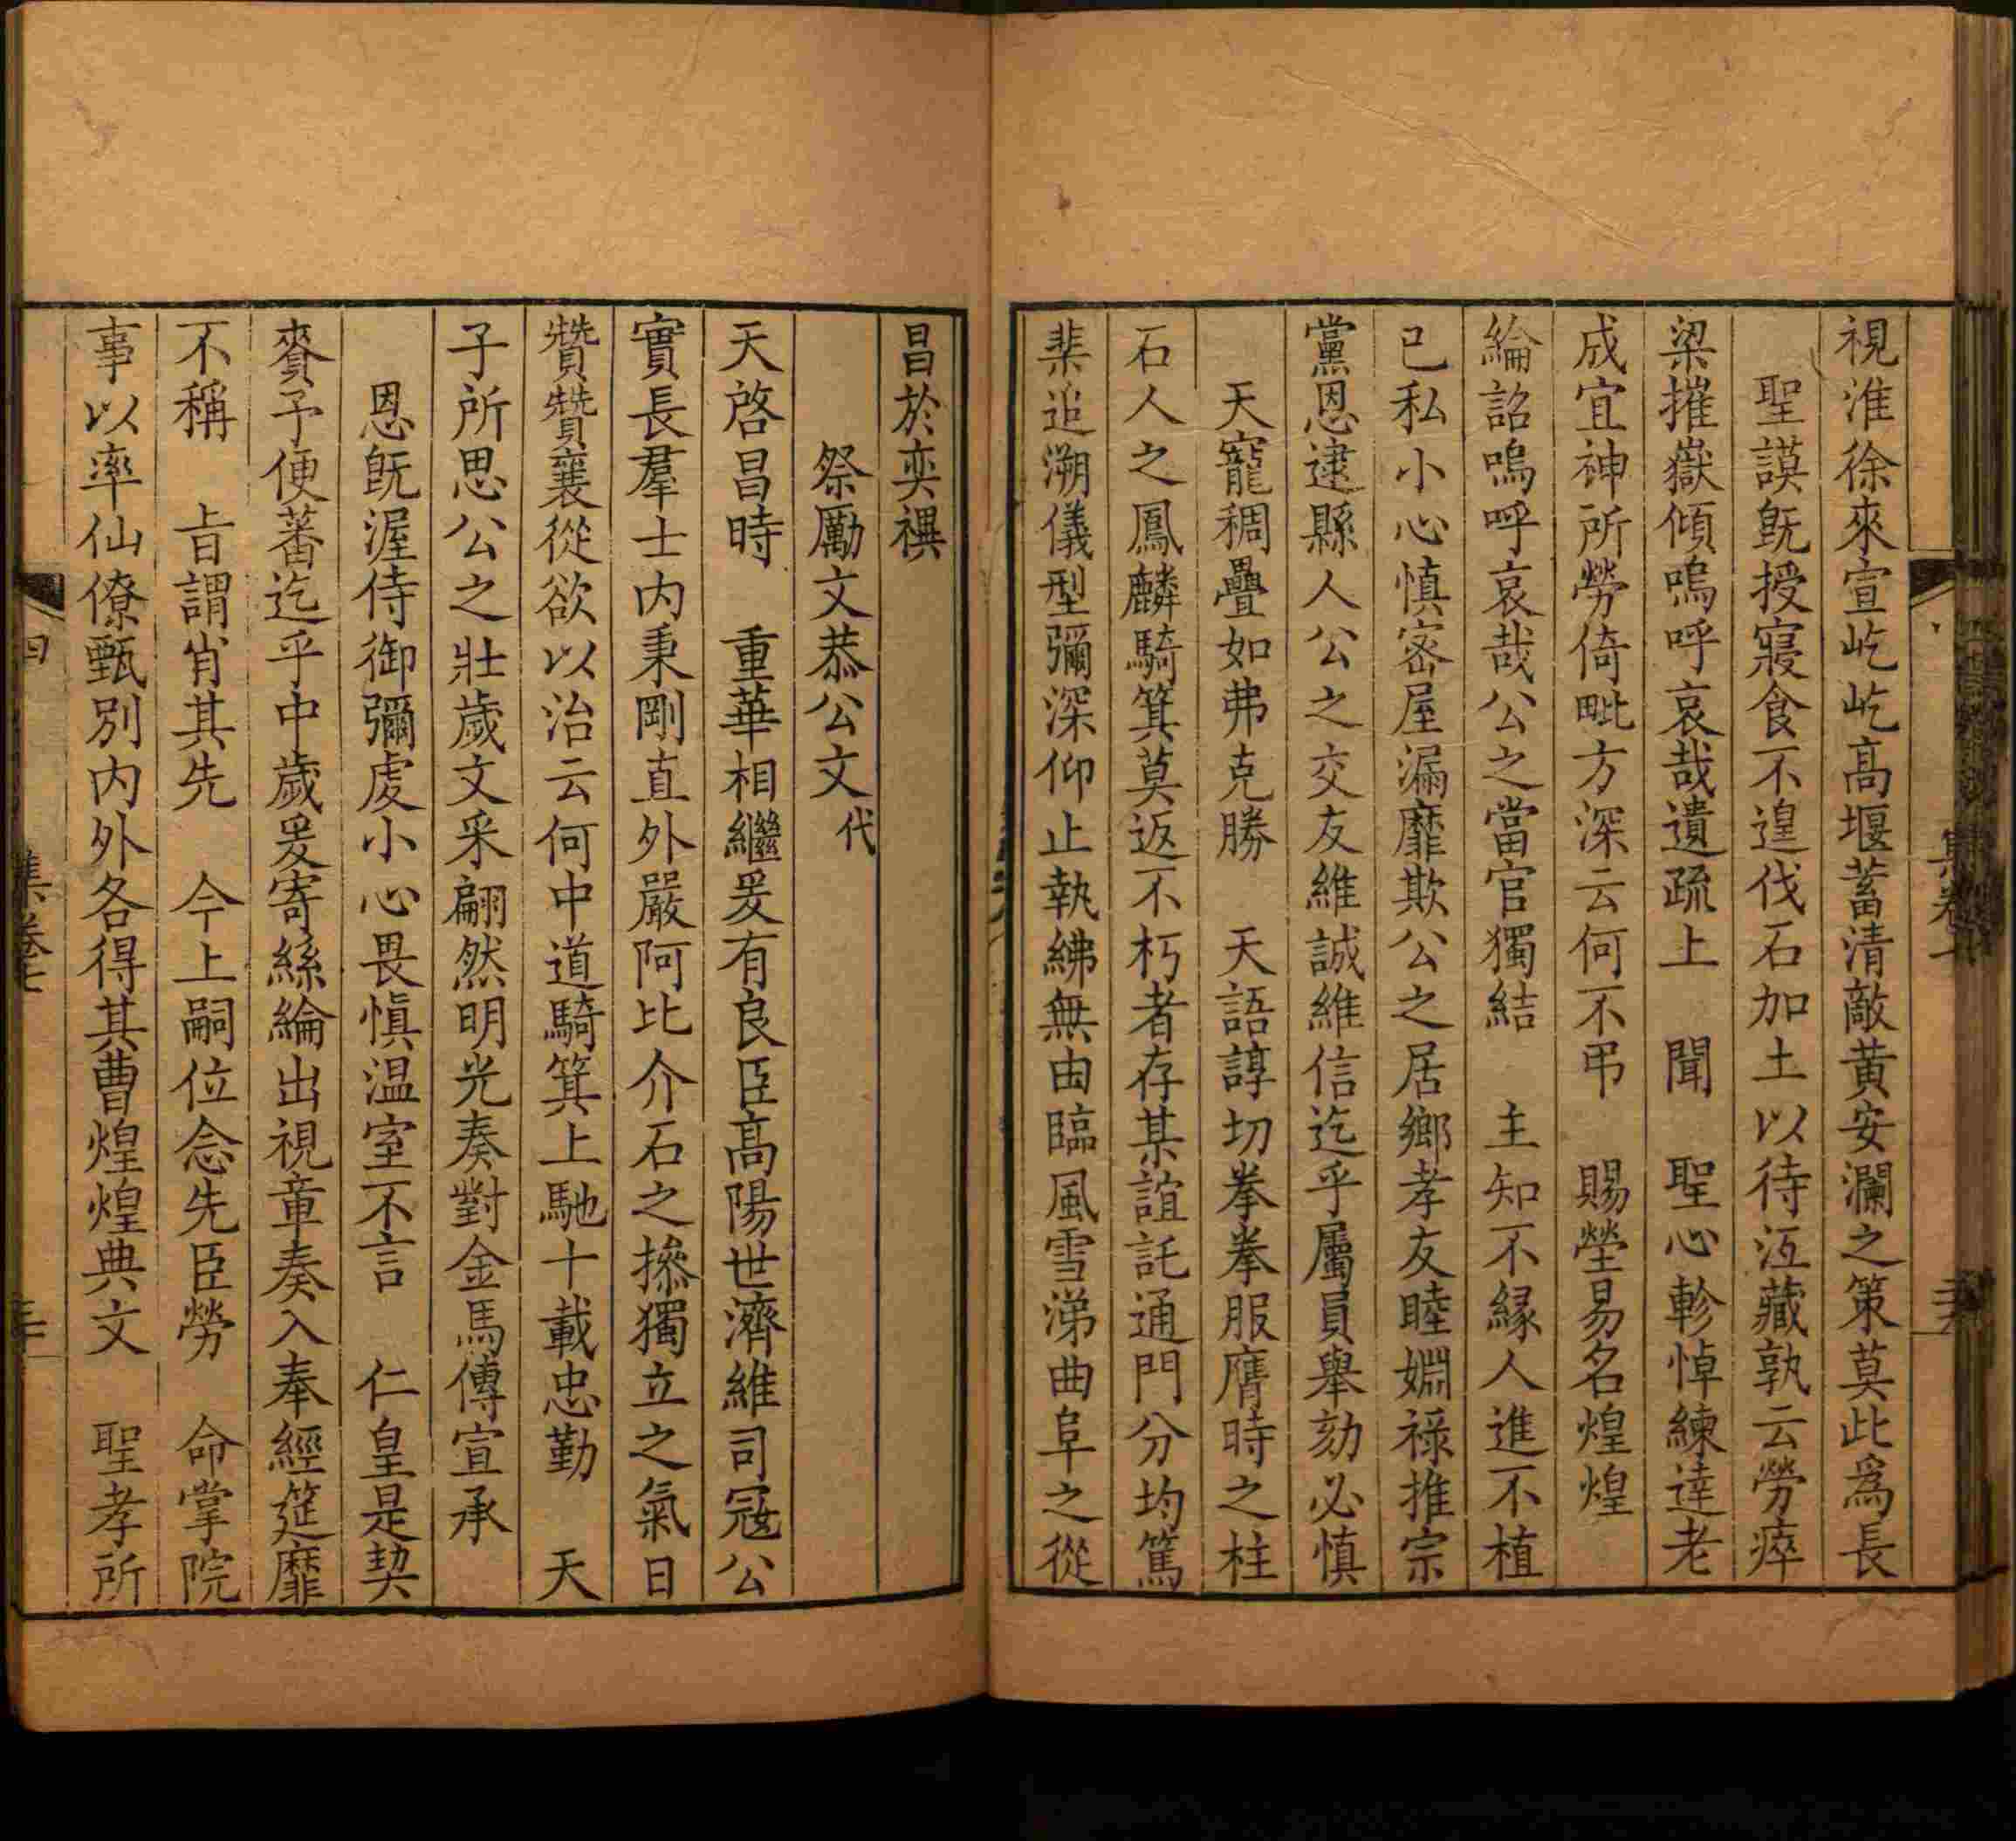 視淮徐來宣屹屹高堰蓄清敵黃安瀾之策莫此爲長
聖謨既授寢食不遑伐石加土以待沍藏孰云勞瘁
梁摧嶽傾嗚呼哀哉遺疏上 聞 聖心軫悼練達老
成宜神所勞倚毗方深云何不弔 賜塋易名煌煌
綸詔嗚呼哀哉公之當官獨結 主知不緣人進不植
己私小心慎密屋漏靡欺公之居鄉孝友睦婣祿推宗
黨恩逮縣人公之交友維誠維信迄乎屬員舉劾必慎
天寵稠疊如弗克勝 天語諄切拳拳服膺時之柱
石人之鳳麟騎箕莫返不朽者存某誼託通門分均篤
棐追溯儀型彌深仰止執紼無由臨風雪涕曲阜之從
昌於奕禩
祭勵文恭公文代
天啓昌時 重華相繼爰有良臣高陽世濟維司冦公
實長羣士内秉剛直外嚴阿比介石之摻獨立之氣日
贊贊襄從欲以治云何中道騎箕上馳十載忠勤 天
子所思公之壯歲文采翩然明光奏對金馬傳宣承
恩既渥侍御彌虔小心畏慎温室不言 仁皇是契
賚予便蕃迄乎中歲爰寄絲綸出視章奏入奉經筵靡
不稱 旨謂肖其先 今上嗣位念先臣勞 命掌院
事以率仙僚甄別内外各得其曹煌煌典文 聖孝所
集卷七